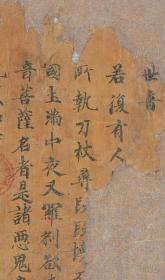 世音
若復有人
所執刀杖尋段段壞
國土滿中夜叉羅剎欲
音菩薩名者是諸惡鬼